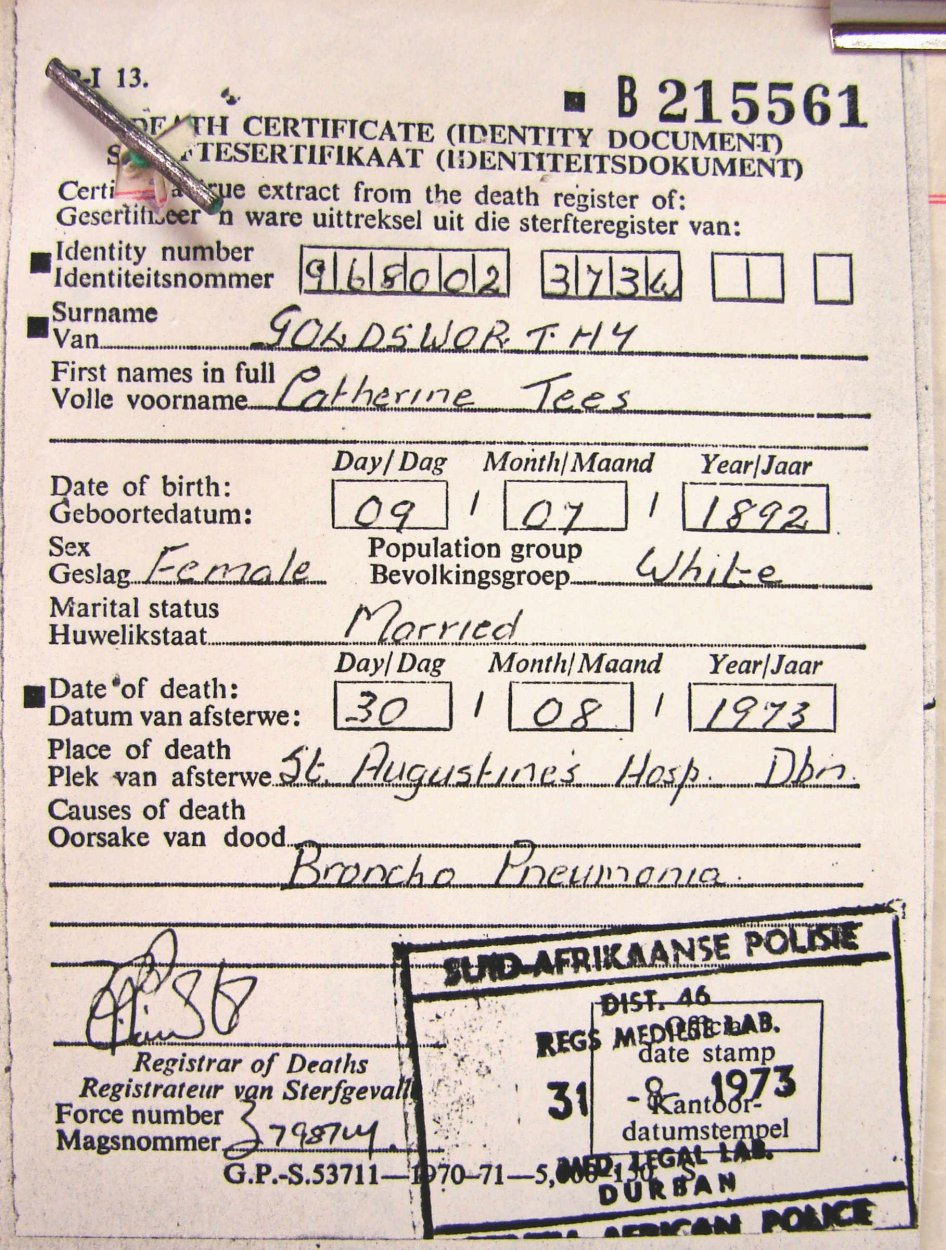 -I 13.
■ B 215561
DEATH CERTIFICATE (IDENTITY DOCUMENT)
S FTESERTIFIKAAT (IDENTITEITSDOKUMENT)
Certi a true extract from the death register of:
Gesertifiseer 'n ware uittreksel uit die sterfteregister van:
Identity number
Identiteitsnommer 968002 3734
Surname
Van GOLDSWORTHY
First names in full
Volle voorname Catherine Tees
Day/Dag Month/Maand Year/Jaar
Date of birth:
Geboortedatum: 09 / 07 / 1892
Sex Population group
Geslag Female Bevolkingsgroep White
Marital status
Huwelikstaat Married
Day/Dag Month/Maand Year/Jaar
Date of death:
Datum van afsterwe: 30 / 08 / 1973
Place of death
Plek van afsterwe St. Augustine's Hosp. Dbn.
Causes of death
Oorsake van dood
Broncho Pneumonia.
SUID-AFRIKAANSE POLISIE
DIST. 46
REGS MEDIESE LAB.
Official
date stamp
31 -8- 1973
Kantoor-
datumstempel
MED. LEGAL LAB.
DURBAN
SOUTH AFRICAN POLICE
Registrar of Deaths
Registrateur van Sterfgevalle
Force number
Magsnommer
G.P.-S.53711—1970-71—5,000-150 S